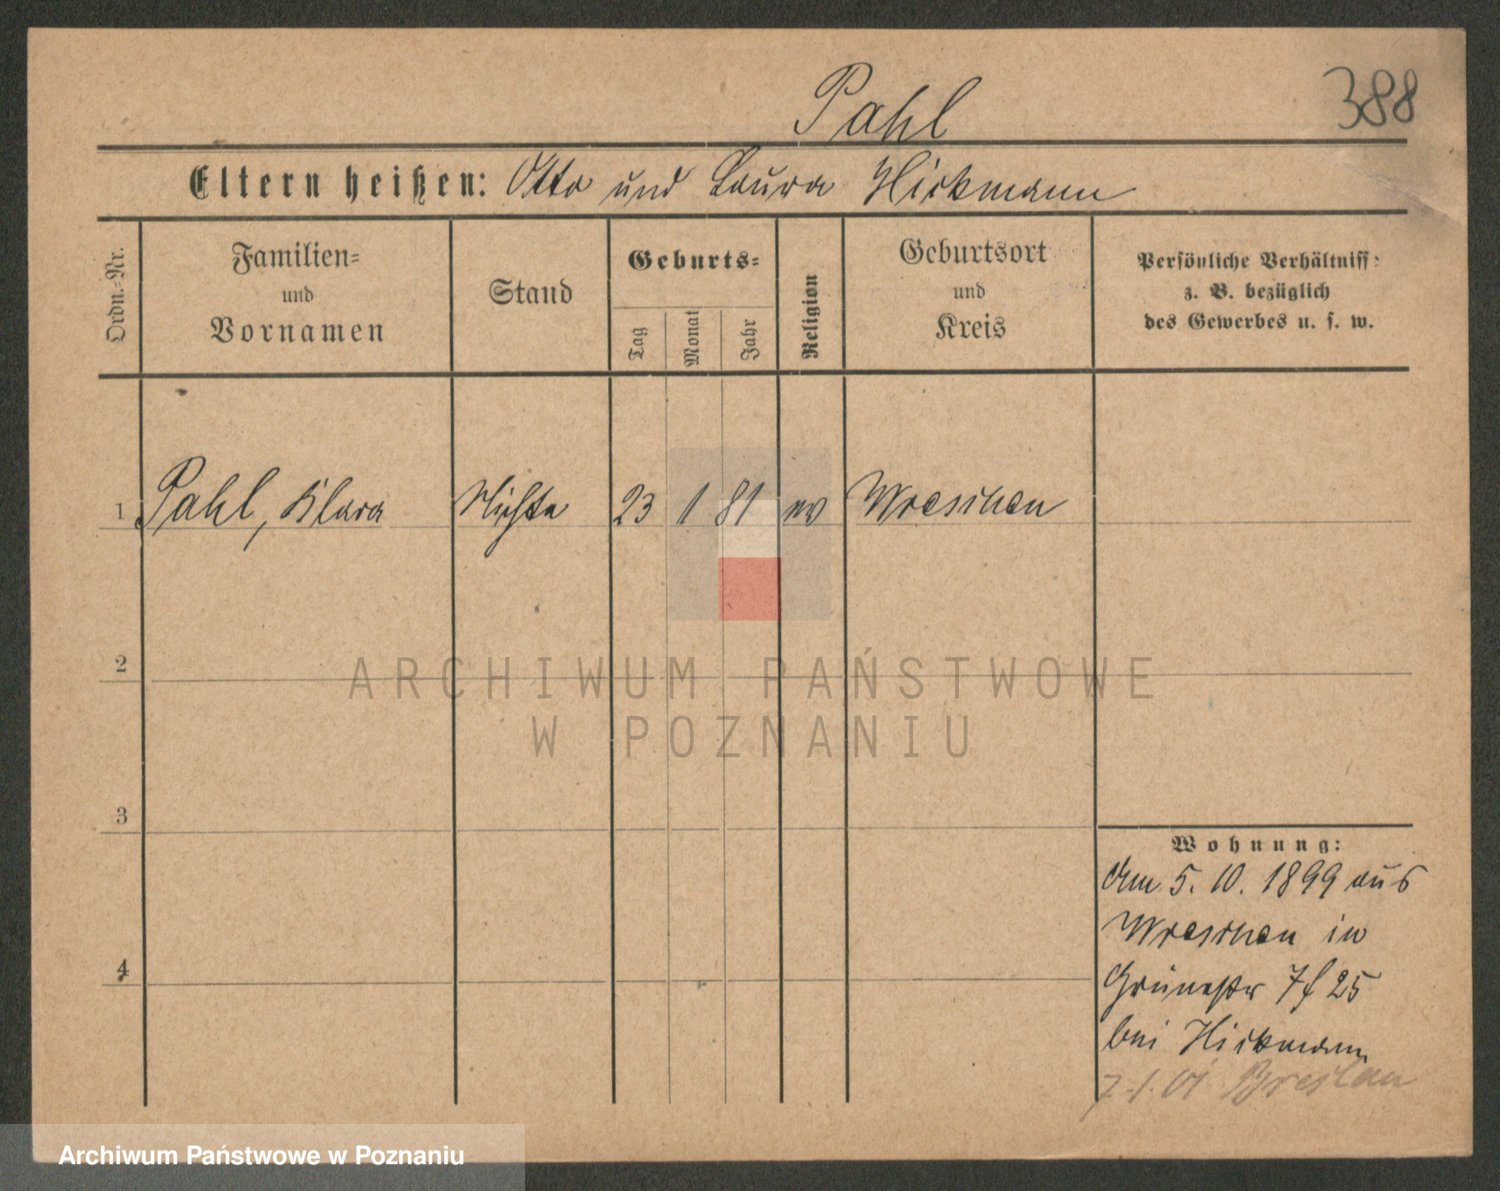 Pahl
388
Eltern heißen: Otto und Laura Hickmann
Ordn.-Nr.
Familien-
und
Vornamen
Stand
Geburts-
Tag
Monat
Jahr
Religion
Geburtsort
und
Kreis
Persönliche Verhältniss-
z. B. bezüglich
des Gewerbes u. s. w.
1 Pahl, Klara Nichte 23 1 81 ev Wreschen
2
3
4
ARCHIWUM PAŃSTWOWE
W POZNANIU
Wohnung:
Am 5. 10. 1899 aus
Wreschen in
Grünestr 25
bei Hickmann
7.1.01 Breslau
Archiwum Państwowe w Poznaniu